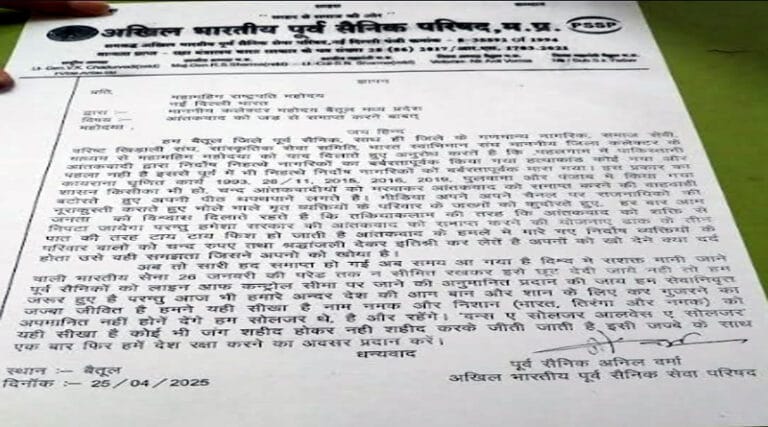 साहस
सम्मान
" साहस से सम्मान की ओर "
अखिल भारतीय पूर्व सैनिक परिषद, म.प्र.
PSSP
सम्बद्ध अखिल भारतीय पूर्व सैनिक सेवा परिषद, नई दिल्ली
ज्ञापन
प्रति,
महामहिम राष्ट्रपति महोदय
नई दिल्ली भारत
द्वारा :– माननीय कलेक्टर महोदय बैतूल मध्य प्रदेश
विषय :– आतंकवाद को जड़ से समाप्त करने बाबत्
महोदया,
जय हिन्द
हम बैतूल जिले पूर्व सैनिक, साथ ही जिले के गणमान्य नागरिक, समाज सेवी,
वरिष्ट खिड़ाली संघ, सांस्कृतिक सेवा समिति, भारत स्वाभिमान संघ माननीय जिला कलेक्टर के
माध्यम से महामहिम महोदया को याद दिलाते हुए अनुरोध करते है कि पहलगाम में पाकिस्तानी
आतंकवादी द्वारा निर्दोष निहत्थे नागरिकों का बर्बरतापूर्वक किया गया हत्याकांड कोई नया और
पहला नही है इससे पूर्व में भी निहत्थे निर्दोष नागरिकों को बर्बरतापूर्वक मारा गया। इस प्रकार का
कायराना घृणित कार्य 1993, 26/11, 2015, 2016, 2019, पुलवामा और पंजाब में किया गया
शासन किसीका भी हो, चन्द आतंकवादीयों को मरवाकर आतंकवाद को समाप्त करने की वाहवाही
बटोरते हुए अपनी पीठ थपथपाने लगते है। मीडिया अपने अपने चैनल पर राजनायिको की
नूराकुश्ती कराते हुए भोले भाले मृत व्यक्तियों के परिवार के जख्मों को कुचोरते हुए, हर बार आम
जनता को विश्वास दिलाते रहते है कि तकियाकलाम की तरह कि आतंकवाद को शक्ति से
निपटा जायेगा परन्तु हमेशा सरकार की आतंकवाद को समाप्त करने की योजनाए ढाक के तीन
पात की तरह टाय टाय फिश हो जाती है आतंकवाद के हमले में मारे गए निर्दोष व्यक्तियों के
परिवार वालो को चन्द रुपए तथा श्रध्दांजली देकर इतिश्री कर लेते है अपनों की खो देने क्या दर्द
होता उसे वही समझता जिसने अपनो को खोया है।
अब तो सारी हद समाप्त हो गई अब समय आ गया है विश्व में सशक्त मानी जाने
वाली भारतीय सेना 26 जनवरी की परेड तक न सीमित रखकर इसे छूट देदी जाये नही तो हम
पूर्व सैनिकों को लाइन आफ कन्ट्रोल सीमा पर जाने की अनुमानित प्रदान की जाय हम सेवानिवृत्त
जरूर हुए है परन्तु आज भी हमारे अन्दर देश की आम बान और शान के लिए मर गुजरने का
जज्बा जीवित है हमने यही सीखा है नाम नमक और निशान (भारत, तिरंगा और नमक) को
अपमानित नहीं होने देंगे हम सोलजर थे, है और रहेंगे। 'वन्स ए सोलजर आलवेस ए सोलजर'
यही सीखा है कोई भी जंग शहीद होकर नही शहीद करके जीती जाती है, इसी जज्बे के साथ
एक बार फिर हमें देश रक्षा करने का अवसर प्रदान करें।
धन्यवाद
पूर्व सैनिक अनिल वर्मा
अखिल भारतीय पूर्व सैनिक सेवा परिषद
स्थान :– बैतूल
दिनाँक :– 25/04/2025